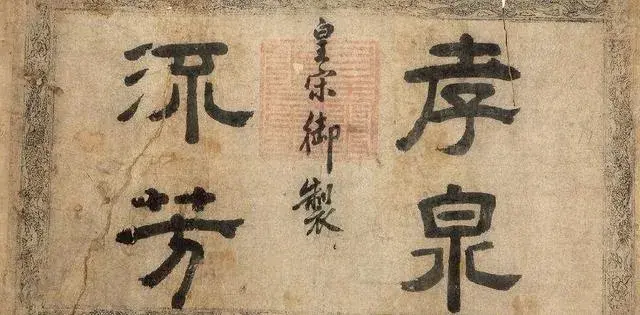 孝泉
皇宋御製
流芳